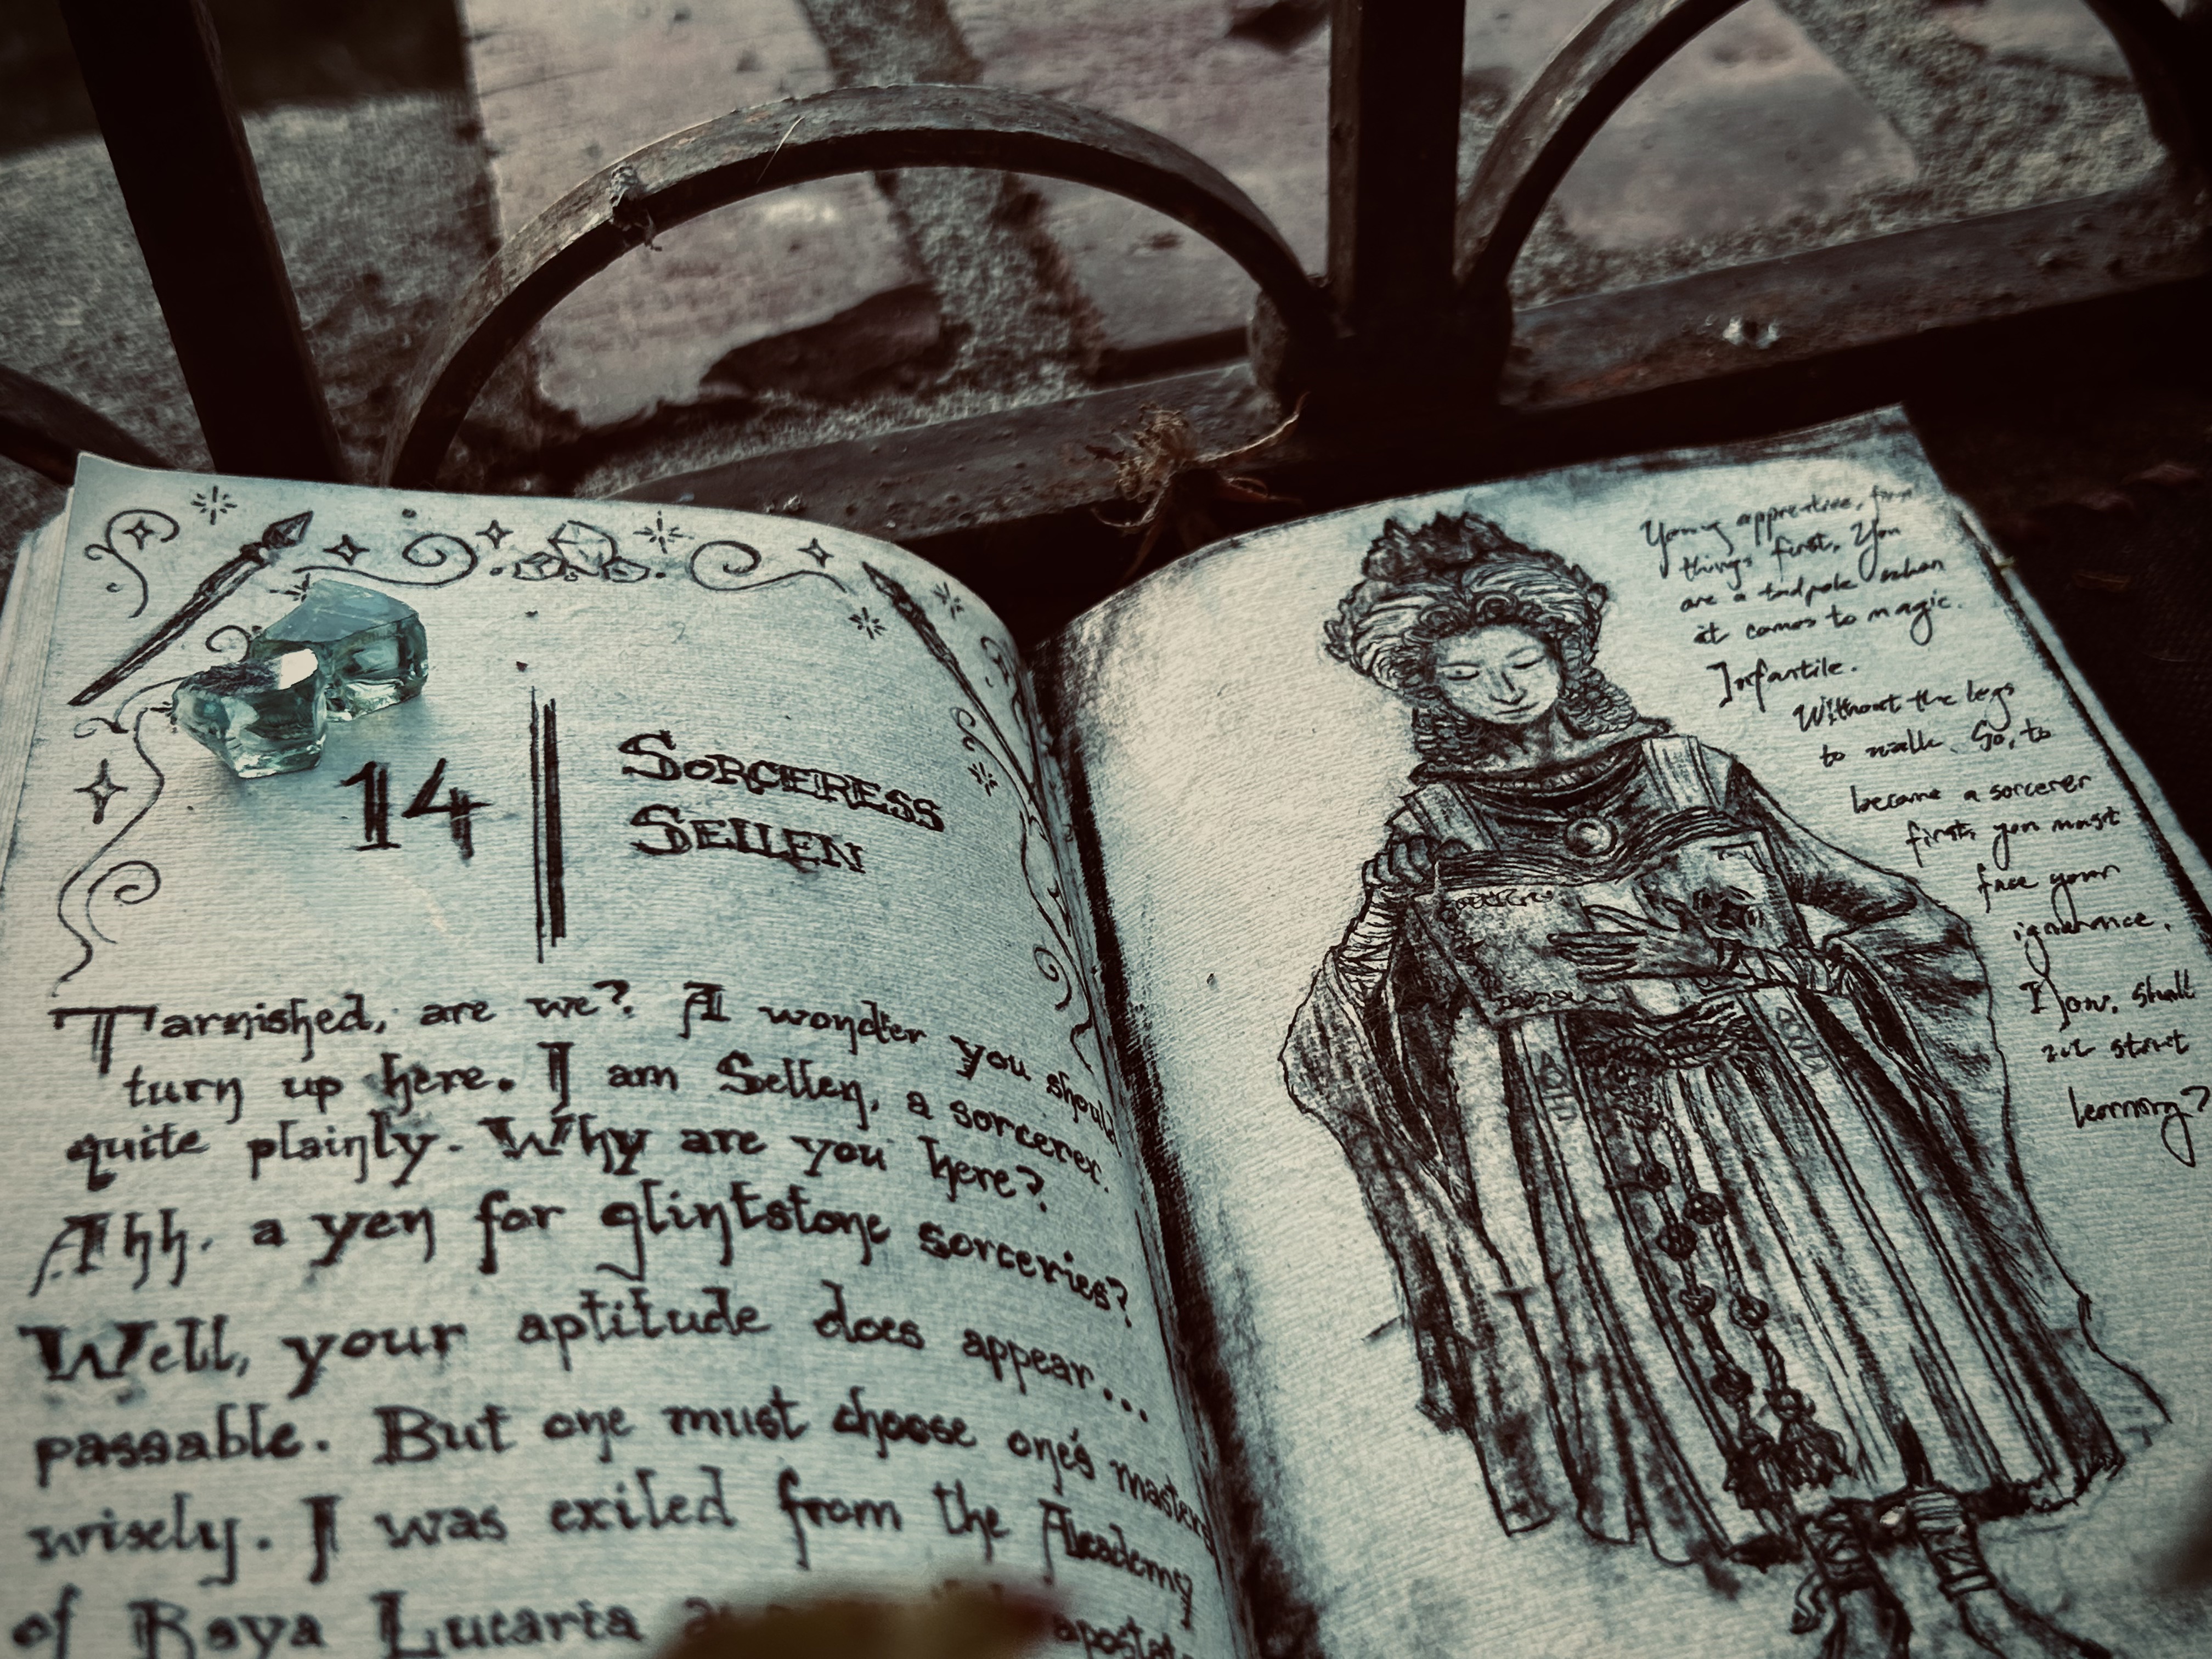 14
SORCERESS
SELLEN
Tarnished, are we? A wonder you should
turn up here. I am Sellen, a sorcerer.
quite plainly. Why are you here?
Ahh, a yen for glintstone sorceries?
Well, your aptitude does appear...
passable. But one must choose one's masters
wisely. I was exiled from the Academy
of Raya Lucaria
Young apprentice, first
things first. You
are a tadpole when
it comes to magic.
Infantile.
Without the legs
to walk. So, to
become a sorcerer
first, you must
face your
ignorance.
Now, shall
we start
learning?